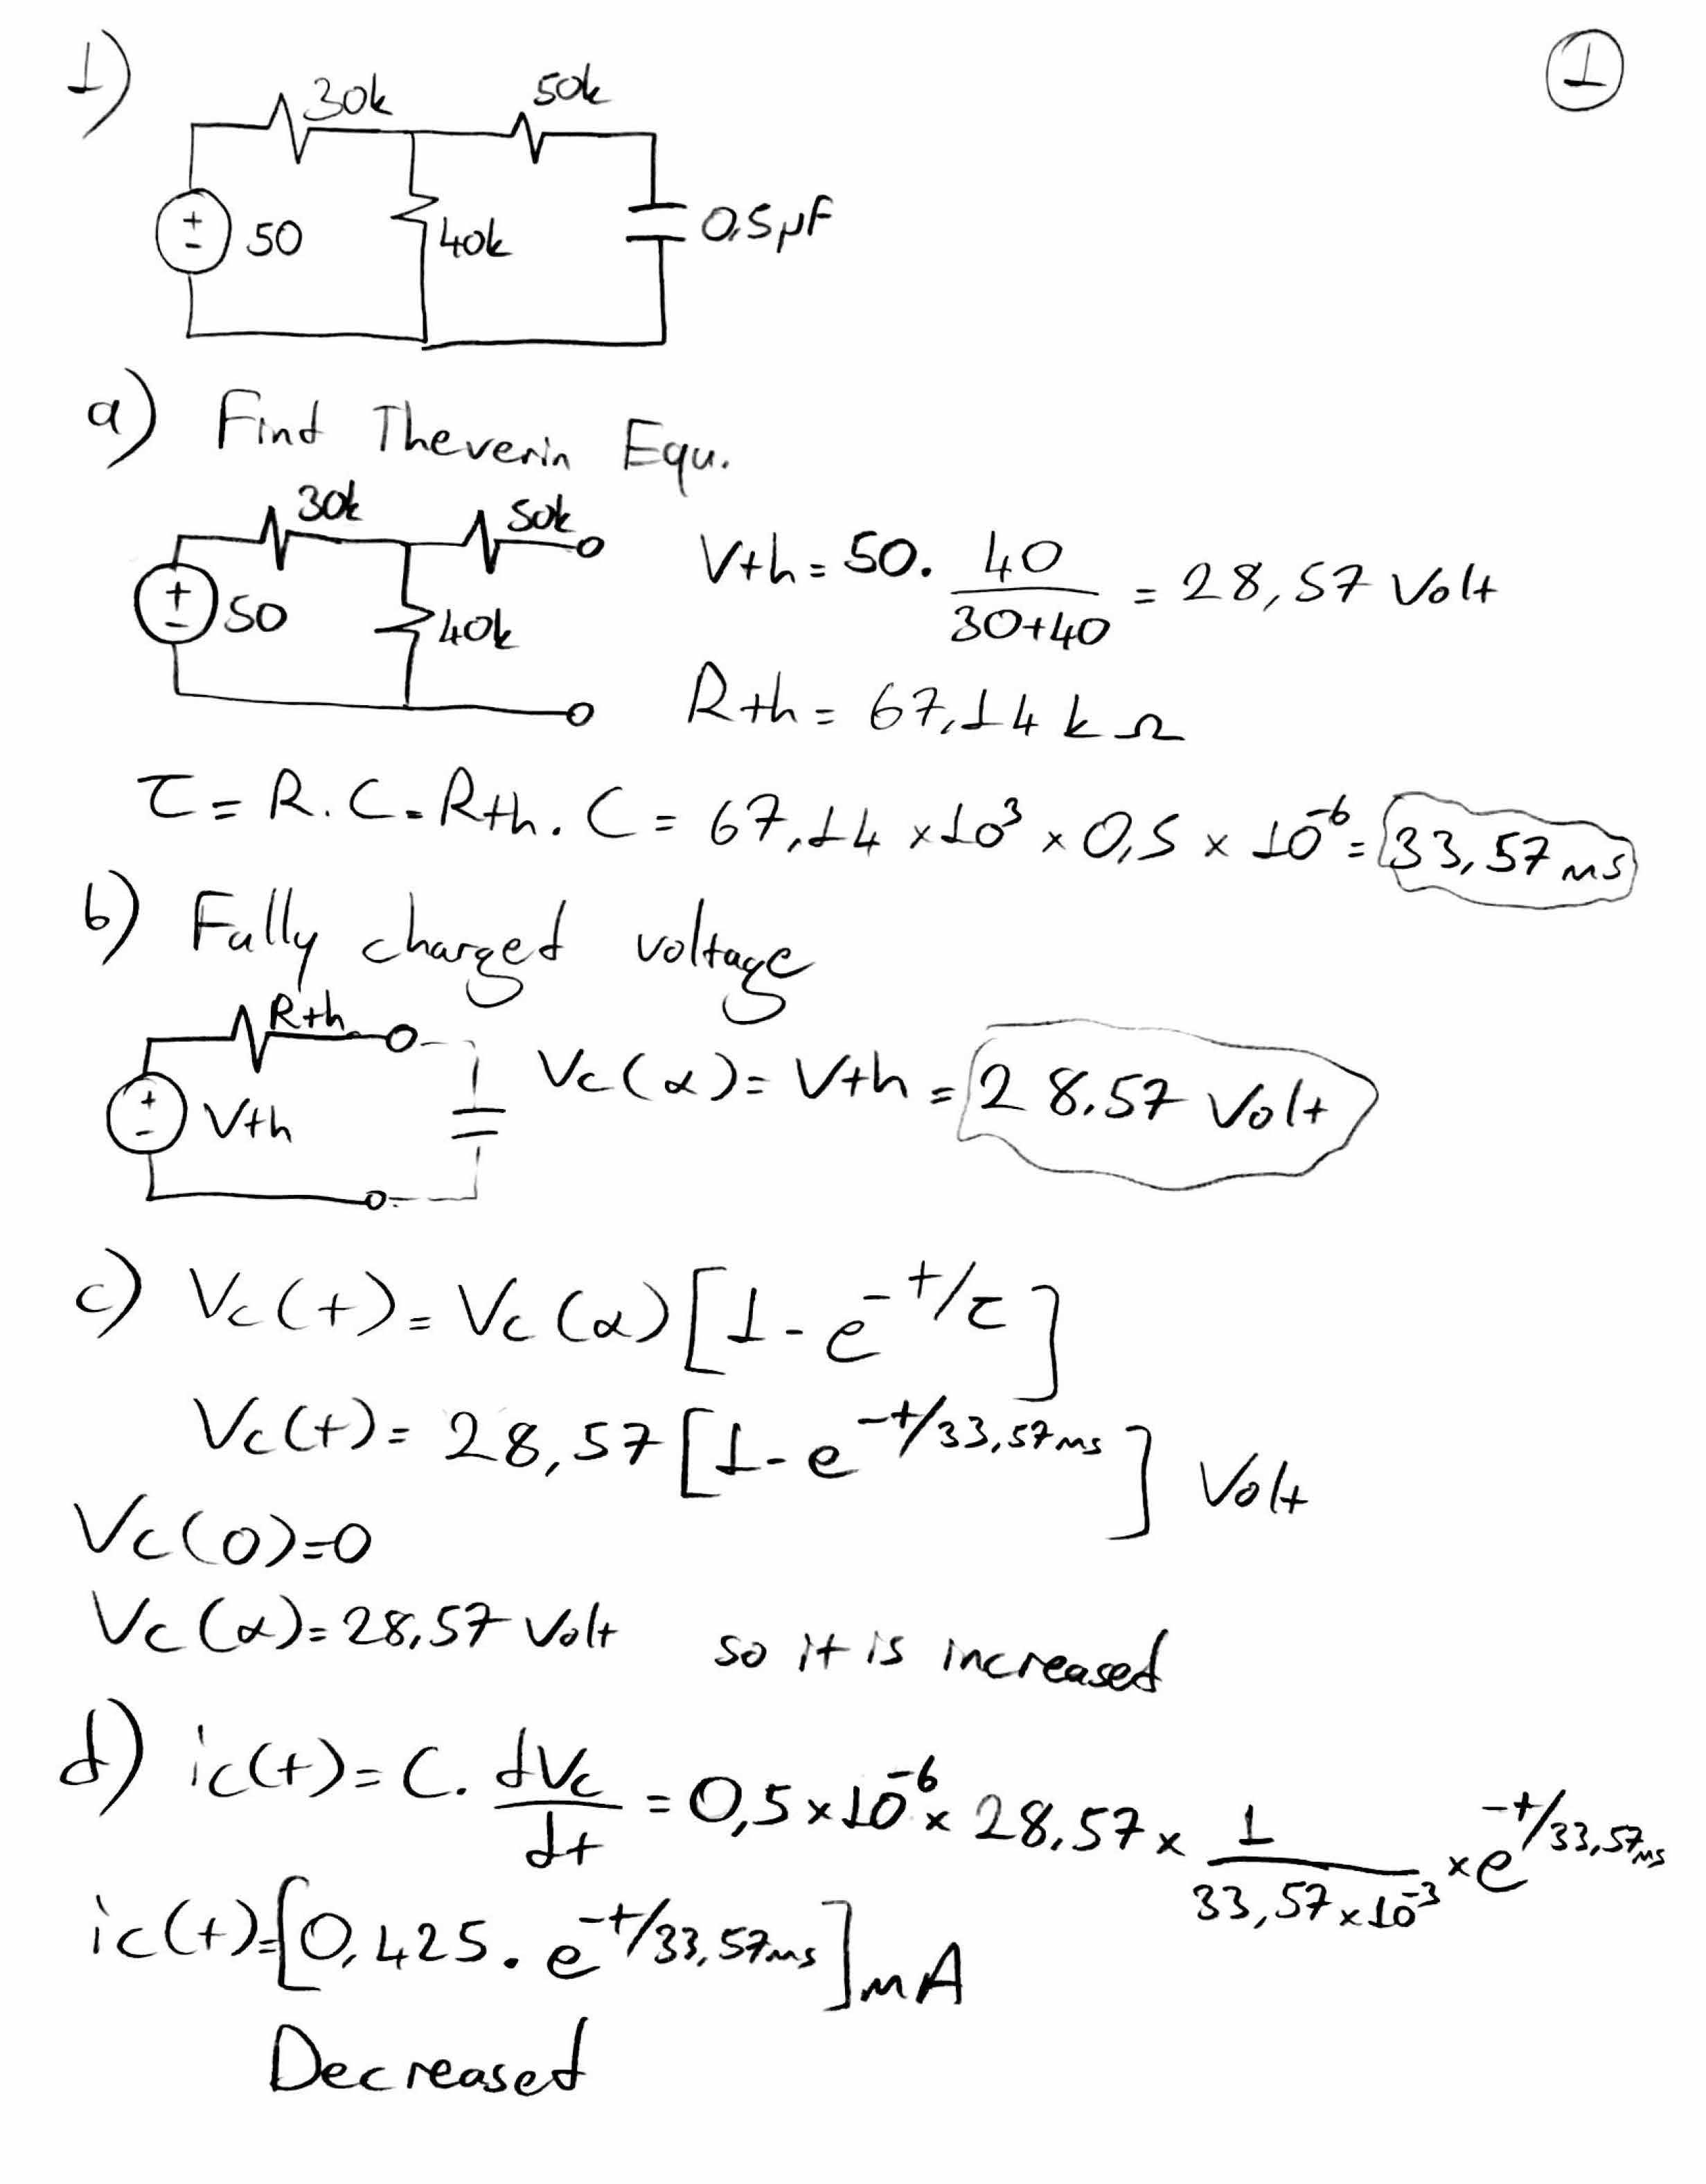 1)
①
30k 50k
+
- 50 40k 0,5μF
a) Find Thevenin Equ.
30k 50k
+
- 50 40k
Vth = 50. 40/(30+40) = 28,57 Volt
Rth = 67,14 k Ω
τ = R.C = Rth.C = 67,14 x10³ x 0,5 x 10⁻⁶ = 33,57 ms
b) Fully charged voltage
Rth
+
- Vth
Vc(α) = Vth = 28,57 Volt
c) Vc(t) = Vc(α)[1 - e^(-t/τ)]
Vc(t) = 28,57[1 - e^(-t/33,57ms)] Volt
Vc(0)=0
Vc(α)=28,57 Volt so it is increased
d) ic(t) = C. dVc/dt = 0,5x10⁻⁶ x 28,57 x 1/(33,57x10⁻³) x e^(-t/33,57ms)
ic(t)=[0,425. e^(-t/33,57ms)] mA
Decreased